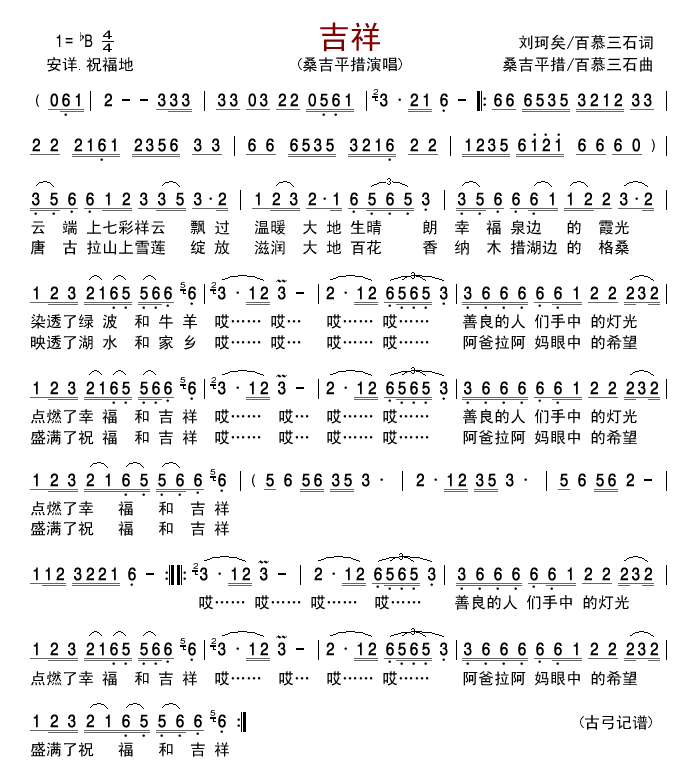 吉祥
1= ♭B 4/4
刘珂矣/百慕三石词
安详.祝福地
(桑吉平措演唱)
桑吉平措/百慕三石曲
( 061 | 2 - - 333 | 33 03 22 0561 | 2 3 · 21 6 - |: 66 6535 3212 33 |
2 2 2161 2356 3 3 | 6 6 6535 3216 2 2 | 1235 6121 6 6 60 ) |
3 5 6 6 1 2 3 3 5 3·2 | 1 2 3 2·1 6 5 6 5 3 | 3 5 6 6 6 1 1 2 2 3·2 |
云 端 上七彩祥云 飘 过 温暖 大 地 生晴 朗 幸 福 泉边 的 霞光
唐 古 拉山上雪莲 绽 放 滋润 大 地 百花 香 纳 木 措湖边 的 格桑
1 2 3 2165 566 5 6 | 2 3 · 12 3 - | 2 · 12 6565 3 | 3 6 6 6 6 6 1 2 2 232 |
染透了绿 波 和 牛 羊 哎…… 哎… 哎…… 哎…… 善良的人 们手中 的灯光
映透了湖 水 和 家 乡 哎…… 哎… 哎…… 哎…… 阿爸拉阿 妈眼中 的希望
1 2 3 2165 566 5 6 | 2 3 · 12 3 - | 2 · 12 6565 3 | 3 6 6 6 6 6 1 2 2 232 |
点燃了幸 福 和 吉 祥 哎…… 哎… 哎…… 哎…… 善良的人 们手中 的灯光
盛满了祝 福 和 吉 祥 哎…… 哎… 哎…… 哎…… 阿爸拉阿 妈眼中 的希望
1 2 3 2 1 6 5 5 6 6 5 6 | ( 5 6 56 35 3 · | 2 · 12 35 3 · | 5 6 56 2 - |
点燃了幸 福 和 吉 祥
盛满了祝 福 和 吉 祥
112 3221 6 - :||: 2 3 · 12 3 - | 2 · 12 6565 3 | 3 6 6 6 6 6 1 2 2 232 |
哎…… 哎…… 哎…… 哎…… 善良的人 们手中 的灯光
1 2 3 2165 566 5 6 | 2 3 · 12 3 - | 2 · 12 6565 3 | 3 6 6 6 6 6 1 2 2 232 |
点燃了幸 福 和 吉 祥 哎…… 哎… 哎…… 哎…… 阿爸拉阿 妈眼中 的希望
1 2 3 2 1 6 5 5 6 6 5 6 :|
(古弓记谱)
盛满了祝 福 和 吉 祥